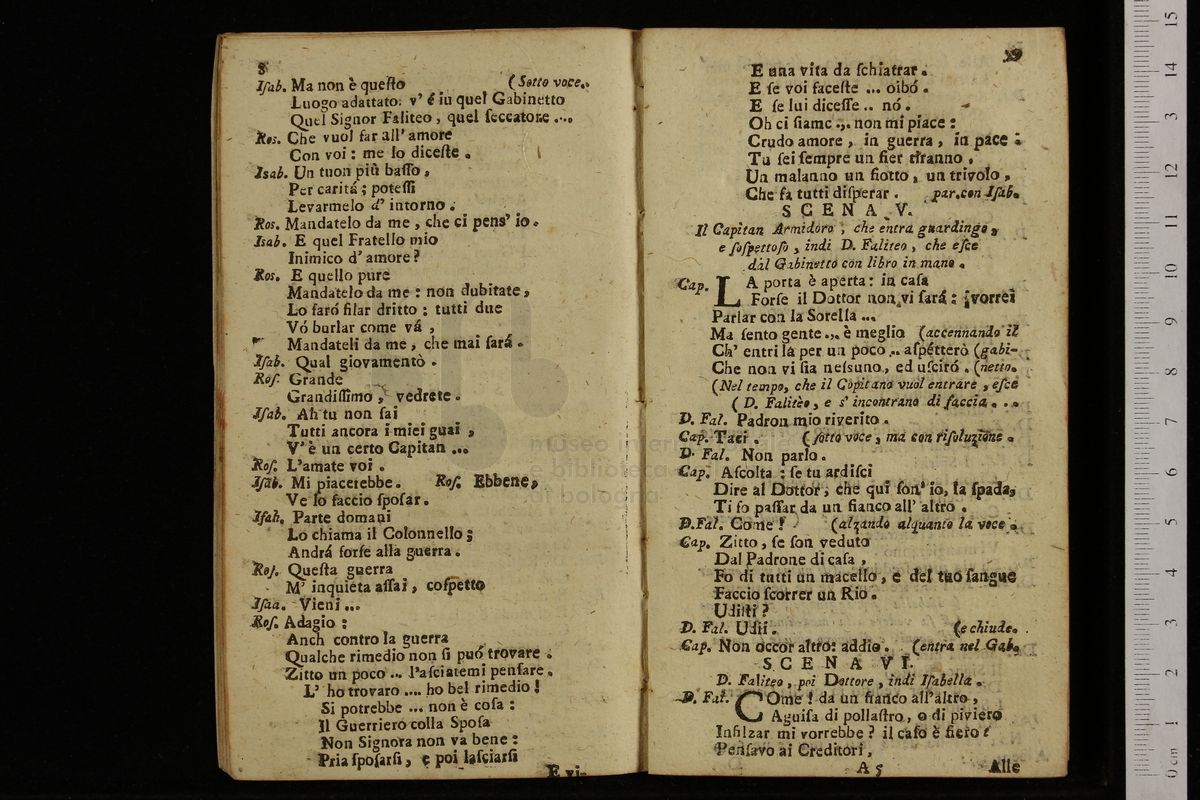 8
Iſab. Ma non è queſto (Sotto voce.
Luogo adattato: v' é in quel Gabinetto
Quel Signor Faliteo, quel ſeccatore ....
Ros. Che vuol far all' amore
Con voi: me lo diceſte.
Isab. Un tuon più baſſo,
Per caritá; poteſſi
Levarmelo d' intorno.
Ros. Mandatelo da me, che ci pens' io.
Isab. E quel Fratello mio
Inimico d' amore?
Ros. E quello pure
Mandatelo da me: non dubitate,
Lo faró filar dritto: tutti due
Vó burlar come vá,
Mandateli da me, che mai ſará.
Iſab. Qual giovamentò.
Roſ. Grande
Grandiſſimo, vedrete.
Iſab. Ah tu non ſai
Tutti ancora i miei guai,
V' è un certo Capitan ...
Roſ. L'amate voi.
Iſab. Mi piacerebbe. Roſ. Ebbene,
Ve lo faccio ſpoſar.
Iſah. Parte domani
Lo chiama il Colonnello;
Andrá forſe alla guerra.
Roſ. Queſta guerra
M' inquieta aſſai, coſpetto
Iſaa. Vieni ...
Roſ. Adagio:
Anch contro la guerra
Qualche rimedio non ſi puó trovare.
Zitto un poco ... l'aſciatemi penſare.
L' ho trovaro .... ho bel rimedio!
Si potrebbe ... non è coſa:
Il Guerriero colla Spoſa
Non Signora non va bene:
Pria ſpoſarſi, e poi laſciarſi
E vi-
E una vita da ſchiattar.
E ſe voi faceſte ... oibó.
E ſe lui diceſſe .. nó.
Oh ci ſiamo ... non mi piace:
Crudo amore, in guerra, in pace:
Tu ſei ſempre un fier tiranno,
Un malanno un fiotto, un trivolo,
Che fa tutti diſperar. par. con Iſab.
SCENA V.
Il Capitan Armidoro, che entra guardingo,
e ſoſpettoſo, indi D. Faliteo, che eſce
dal Gabinetto con libro in mano.
Cap. LA porta è aperta: in caſa
Forſe il Dottor non vi ſará: vorrei
Parlar con la Sorella ...
Ma ſento gente ... è meglio (accennando il
Ch' entri lá per un poco ... aſpétterò (gabi-
Che non vi ſia neſsuno, ed uſciró. (netto.
(Nel tempo, che il Copitano vuol entrare, eſce
(D. Faliteo, e s' incontrano di faccia...
D. Fal. Padron mio riverito.
Cap. Taci. (ſotto voce, ma con riſoluzione.
D. Fal. Non parlo.
Cap. Aſcolta: ſe tu ardiſci
Dire al Dottor, che qui ſon' io, la ſpada,
Ti fo paſſar da un fianco all' altro.
D. Fal. Come! (alzando alquanto la voce.
Cap. Zitto, ſe ſon veduto
Dal Padrone di caſa,
Fo di tutti un macello, e del tuo ſangue
Faccio ſcorrer un Rio.
Udiſti?
D. Fal. Udii. (e chiude.
Cap. Non occor altro: addio. (entra nel Gab.
SCENA VI.
D. Faliteo, poi Dottore, indi Iſabella.
D. Fal. COme! da un fianco all'altro,
Aguiſa di pollaſtro, o di piviero
Infilzar mi vorrebbe? il caſo è fiero!
Penſavo ai Creditori,
A 5 Alle
museo
e biblioteca
di bologna